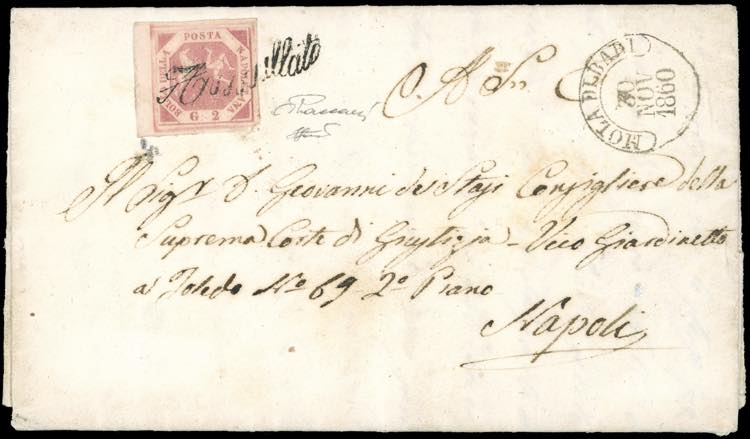 POSTA NAPOLETANA BOLLO
G 2
Annullato
MOLA DI BARI
30 NOV 1860
A S.
Al Sigr D. Giovanni de Stasj Consigliere della
Suprema Corte di Giustizia - Vico Giardinetto
a Toledo No 69 2o Piano
Napoli